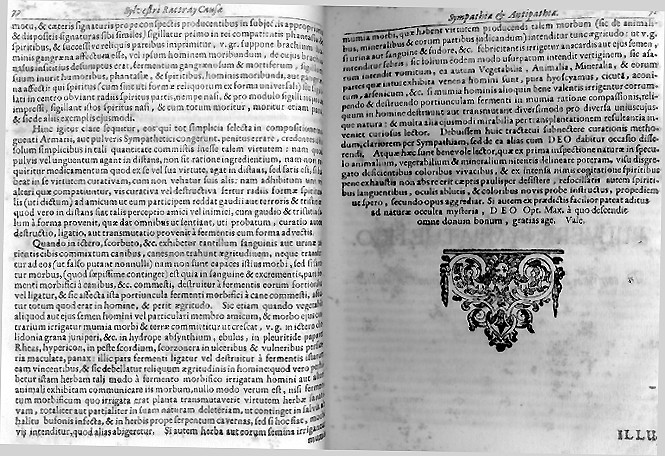 72 Sylvestri Rattray Causæ
motu, & cateris signaturis prope conspectis producentibus in subjectis appropriatis
& dispositis signaturas sibi similes, sigillatur primo in tei compatientis phantasia
spiritibus, & successive reliquis partibus imprimitur, v. gr. suppone brachium
minis gangræna affectum esse, vel ipsum hominem moribundum, de ejus brachio
nasus infectivus desumptus erat, fermentum gangrænæ mox & mortiferum,
sium inurit humoribus, phantasiæ, & spiritibus, hominis moribundi, aut gangræ
na affecti: qui spiritus (cum sint uti formæ reliquorum ex forma universali) sic
lati in centro obviant radiis spiritus partis, nempe nasi, & pro modulo sigilli
impressi, sigillant istos spiritus nasi, & cum totum moritur, moritur etiam pars,
& sic de aliis exemplis ejusmodi.
Hinc igitur clare sequitur, eos qui tot simplicia selecta in compositione
unguenti Armarii, aut pulveris Sympathetici congerunt, penitus errare, credentes
solum simplicibus in tali quantitate commistis inesse talem virtutem: nam qui
pulvis vel unguentum agant in distans, non sit ratione ingredientium, nam non
quiritur medicamentum quod ex se vel sua virtute, agat in distans, sed satis est, si
beat in se virtutem curativam, cum non vehatur suis alis: nam adhibitum
alteri quæ comparatiuntur, vis curativa vel destructiva fertur radiis formæ spiritua
lis (uti dictum) ad amicum ut eum participem reddat gaudii aut terroris & tristitiæ
quod vero in distans fiat talis perceptio amici vel inimici, cum gaudio & tristitia
lum à forma provenit, quæ das omnibus ut sentiant, uti probatum, curatio autem
destructio, ligatio, aut transmutatio provenit à fermentis cum forma advectis.
Quando in ictero, scorbuto, &c. exhibetur tantillum sanguinis aut urinæ
tientis cibis commixtum canibus, canes non trahunt ægritudinem, neque transfer
tur ad eos (ut falso putant nonnulli) nam non sunt capaces istius morbi, sed si
tur morbus, (quod sæpissime contingit) est quia in sanguine & excrementis, pars
menti morbifici à canibus, &c. commesti, destruitur à fermentis eorum fortioribus
vel ligatur, & sic affecta ista portiuncula fermenti morbifici à cane commesti,
tur totum quod erat in homine, & perit ægritudo. Sic etiam quando vegetabile
aliquod aut ejus semen homini vel particulari membro amicum, & morbo ejus con
trarium irrigatur mumia morbi & terræ committitur ut crescat, v. g. in ictero che
lidonia grana juniperi, &c. in hydrope absynthium, ebulus, in pleuritide papaver
Rheas, hypericon, in peste scordium, scorzonera in ulceribus & vulneribus persica
ria maculata, panax: illic pars fermenti ligatur vel destruitur à fermentis istarum
eam vincentibus, & sic debellatur reliquum ægritudinis in homine: quod vero
betur istam herbam tali modo à fermento morbifico irrigatam homini aut alii
animali exhibitam communicare iis morbum, nullo modo verum est, nisi fermen
tum morbificum quo irrigata erat planta transmutaverit virtutem herbæ salu
vam, totaliter aut partialiter in suam naturam deleteriam, ut contingit in salvia
halitu bufonis infecta, & in herbis prope serpentum cavernas, sed si hoc fiat, mor
vis intenditur, quod alias abigeretur. Si autem herba aut eorum semina irrigantur
Sympathiæ & Antipathiæ.
mumia morbi, quæ habent virtutem producendi talem morbum (sic de animali-
bus, mineralibus & eorum partibus judicandum) intenditur tunc ægritudo: ut v. g.
si urina aut sanguine & sudore, &c. febricitantis irrigetur anacardus aut ejus semen,
intenditur febris: sic lolium eodem modo usurpatum intendit vertiginem, sic asa-
rum intendit vomitum, ea autem Vegetabilia, Animalia, Mineralia, & eorum
partes quæ intus exhibita venena homini sunt, puta hyoscyamus, cicuta, aconi-
tum, arsenicum, &c. si mumia hominis alioquin bene valentis irrigetur corrum-
pendo & destruendo portiunculam fermenti in mumia ratione compassionis, reli-
quum in homine destruunt aut transmutant diversimode pro diversa uniuscujus-
que natura: & multa alia quæ ejusmodi mirabilia per transplantationem resultantia in-
veniet curiosus lector. Debuissem huic tractatui subnectere curationis metho-
dum, clariorem per Sympathiam, sed de ea alias cum DEO dabitur occasio disse-
rendi. Atque hæc sunt benevole lector, quæ ex prima inspectione naturæ in specu-
lo animalium, vegetabilium & mineralium nitentis delineare poteram, visu disgre-
gato deficientibus coloribus vivacibus, & ex intensa nimis cogitatione spiritibus
pene exhaustis non abs re erit cæptis paulisper desistere, refocillatis autem spiriti-
bus languentibus, oculis ablutis, & coloribus novis probe instructus, propediem
ut spero, secundo opus aggrediar. Si autem ex prædictis facilior pateat aditus
ad naturæ occulta mysteria, DEO Opt. Max. à quo descendit
omne donum bonum, gratias age. Vale.
ILLU